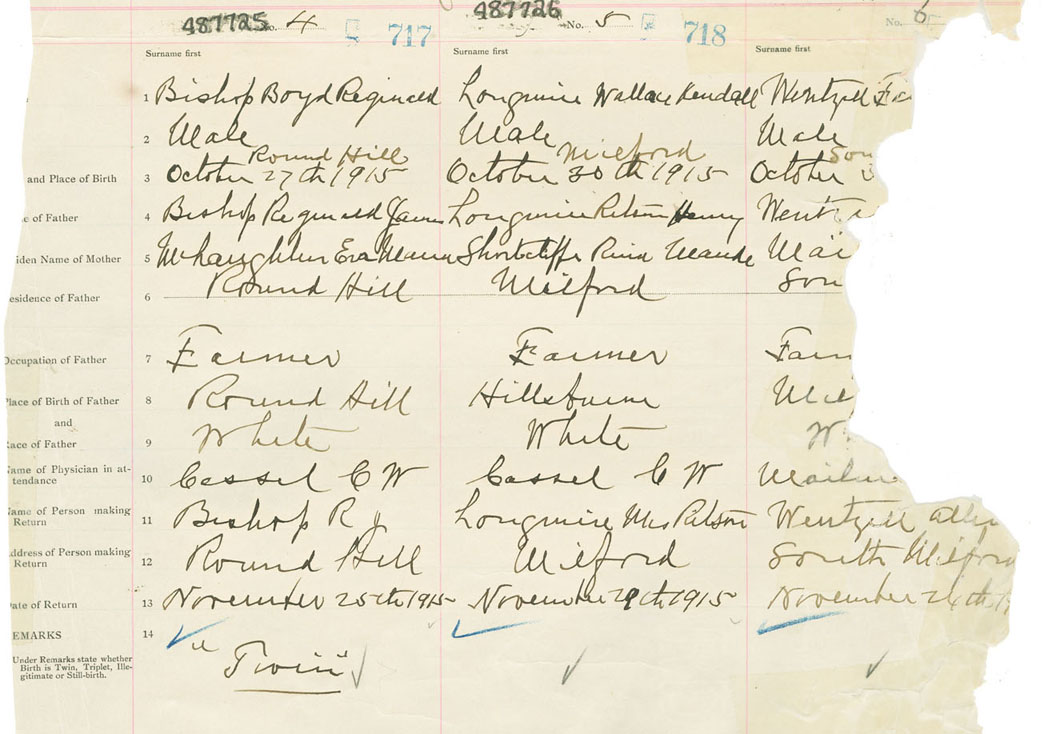 487725 No. 4 717 487726 No. 5 718 No. 6
Surname first Surname first Surname first
1 Bishop Boyd Reginald Longmire Wallace Kendall Wentzell
2 Male Male Male
Round Hill Milford Sou
and Place of Birth 3 October 27th 1915 October 30th 1915 October
e of Father 4 Bishop Reginald James Longmire Ritson Henry Wentz
iden Name of Mother 5 McLaughlin Eva Shortcliffe Maude Mai
esidence of Father 6 Round Hill Milford Sou
Occupation of Father 7 Farmer Farmer Farm
Place of Birth of Father 8 Round Hill Hillsburn Mil
and
Race of Father 9 White White W
Name of Physician in at-
tendance 10 Cassel C W Cassel C W
Name of Person making
Return 11 Bishop R J Longmire Mrs Ritson Wentzell
Address of Person making
Return 12 Round Hill Milford South Milford
Date of Return 13 November 25th 1915 November 29th 1915 November 1
EMARKS 14
Under Remarks state whether
Birth is Twin, Triplet, Ille-
gitimate or Still-birth.
"Twin"